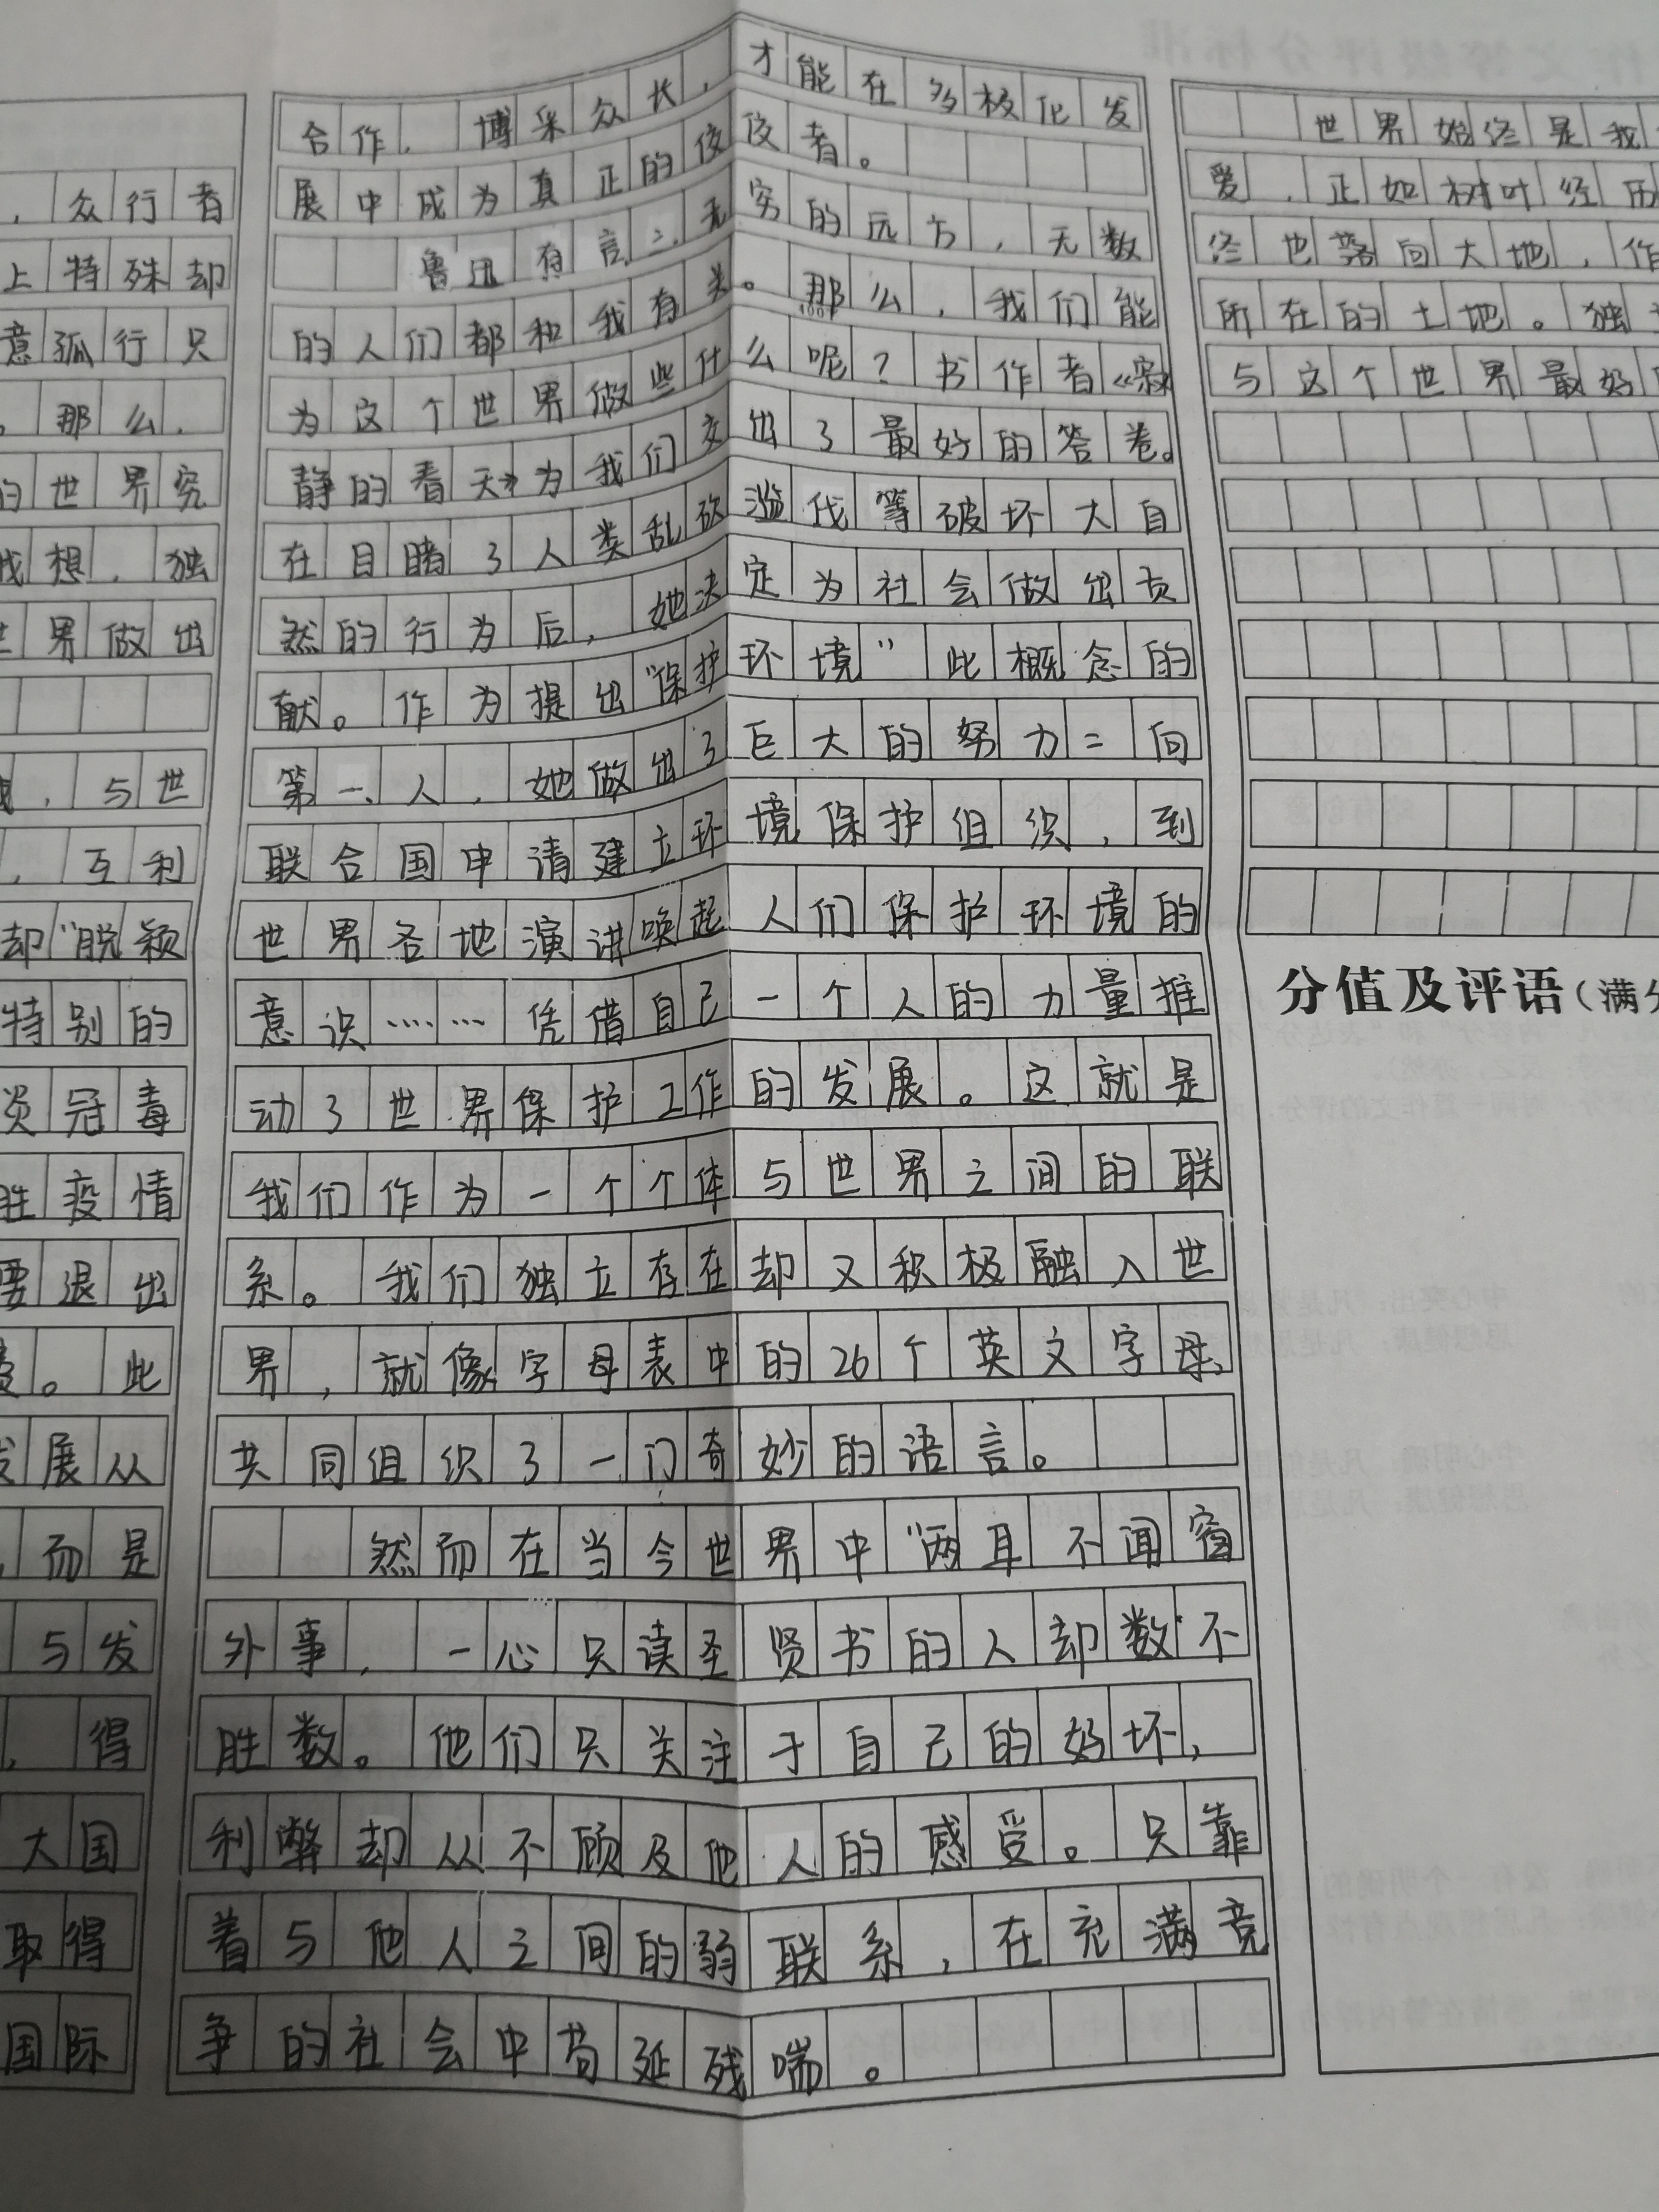 ，众行者
上特殊却
意孤行只
。那么，
的世界究
我想，独
世界做出
，与世
，互利
却“脱颖
特别的
炎冠毒
胜疫情
要退出
。此
发展从
，而是
与发
，得
大国
取得
国际
合作，博采众长，才能在多极化发
展中成为真正的佼佼者。
鲁迅有言：无穷的远方，无数
的人们都和我有关。那么，我们能
为这个世界做些什么呢？书作者《寂
静的春天》为我们交出了最好的答卷。
在目睹了人类乱砍滥伐等破坏大自
然的行为后，她决定为社会做出贡
献。作为提出“保护环境”此概念的
第一人，她做出了巨大的努力：向
联合国申请建立环境保护组织，到
世界各地演讲唤起人们保护环境的
意识……凭借自己一个人的力量推
动了世界保护工作的发展。这就是
我们作为一个个体与世界之间的联
系。我们独立存在却又积极融入世
界，就像字母表中的26个英文字母，
共同组织了一门奇妙的语言。
然而在当今世界中“两耳不闻窗
外事，一心只读圣贤书的人却数不
胜数。他们只关注于自己的好坏，
利弊却从不顾及他人的感受。只靠
着与他人之间的弱联系，在充满竞
争的社会中苟延残喘。
世界始终是我
爱，正如树叶经历
终也落向大地，作
所在的土地。独
与这个世界最好
分值及评语（满分